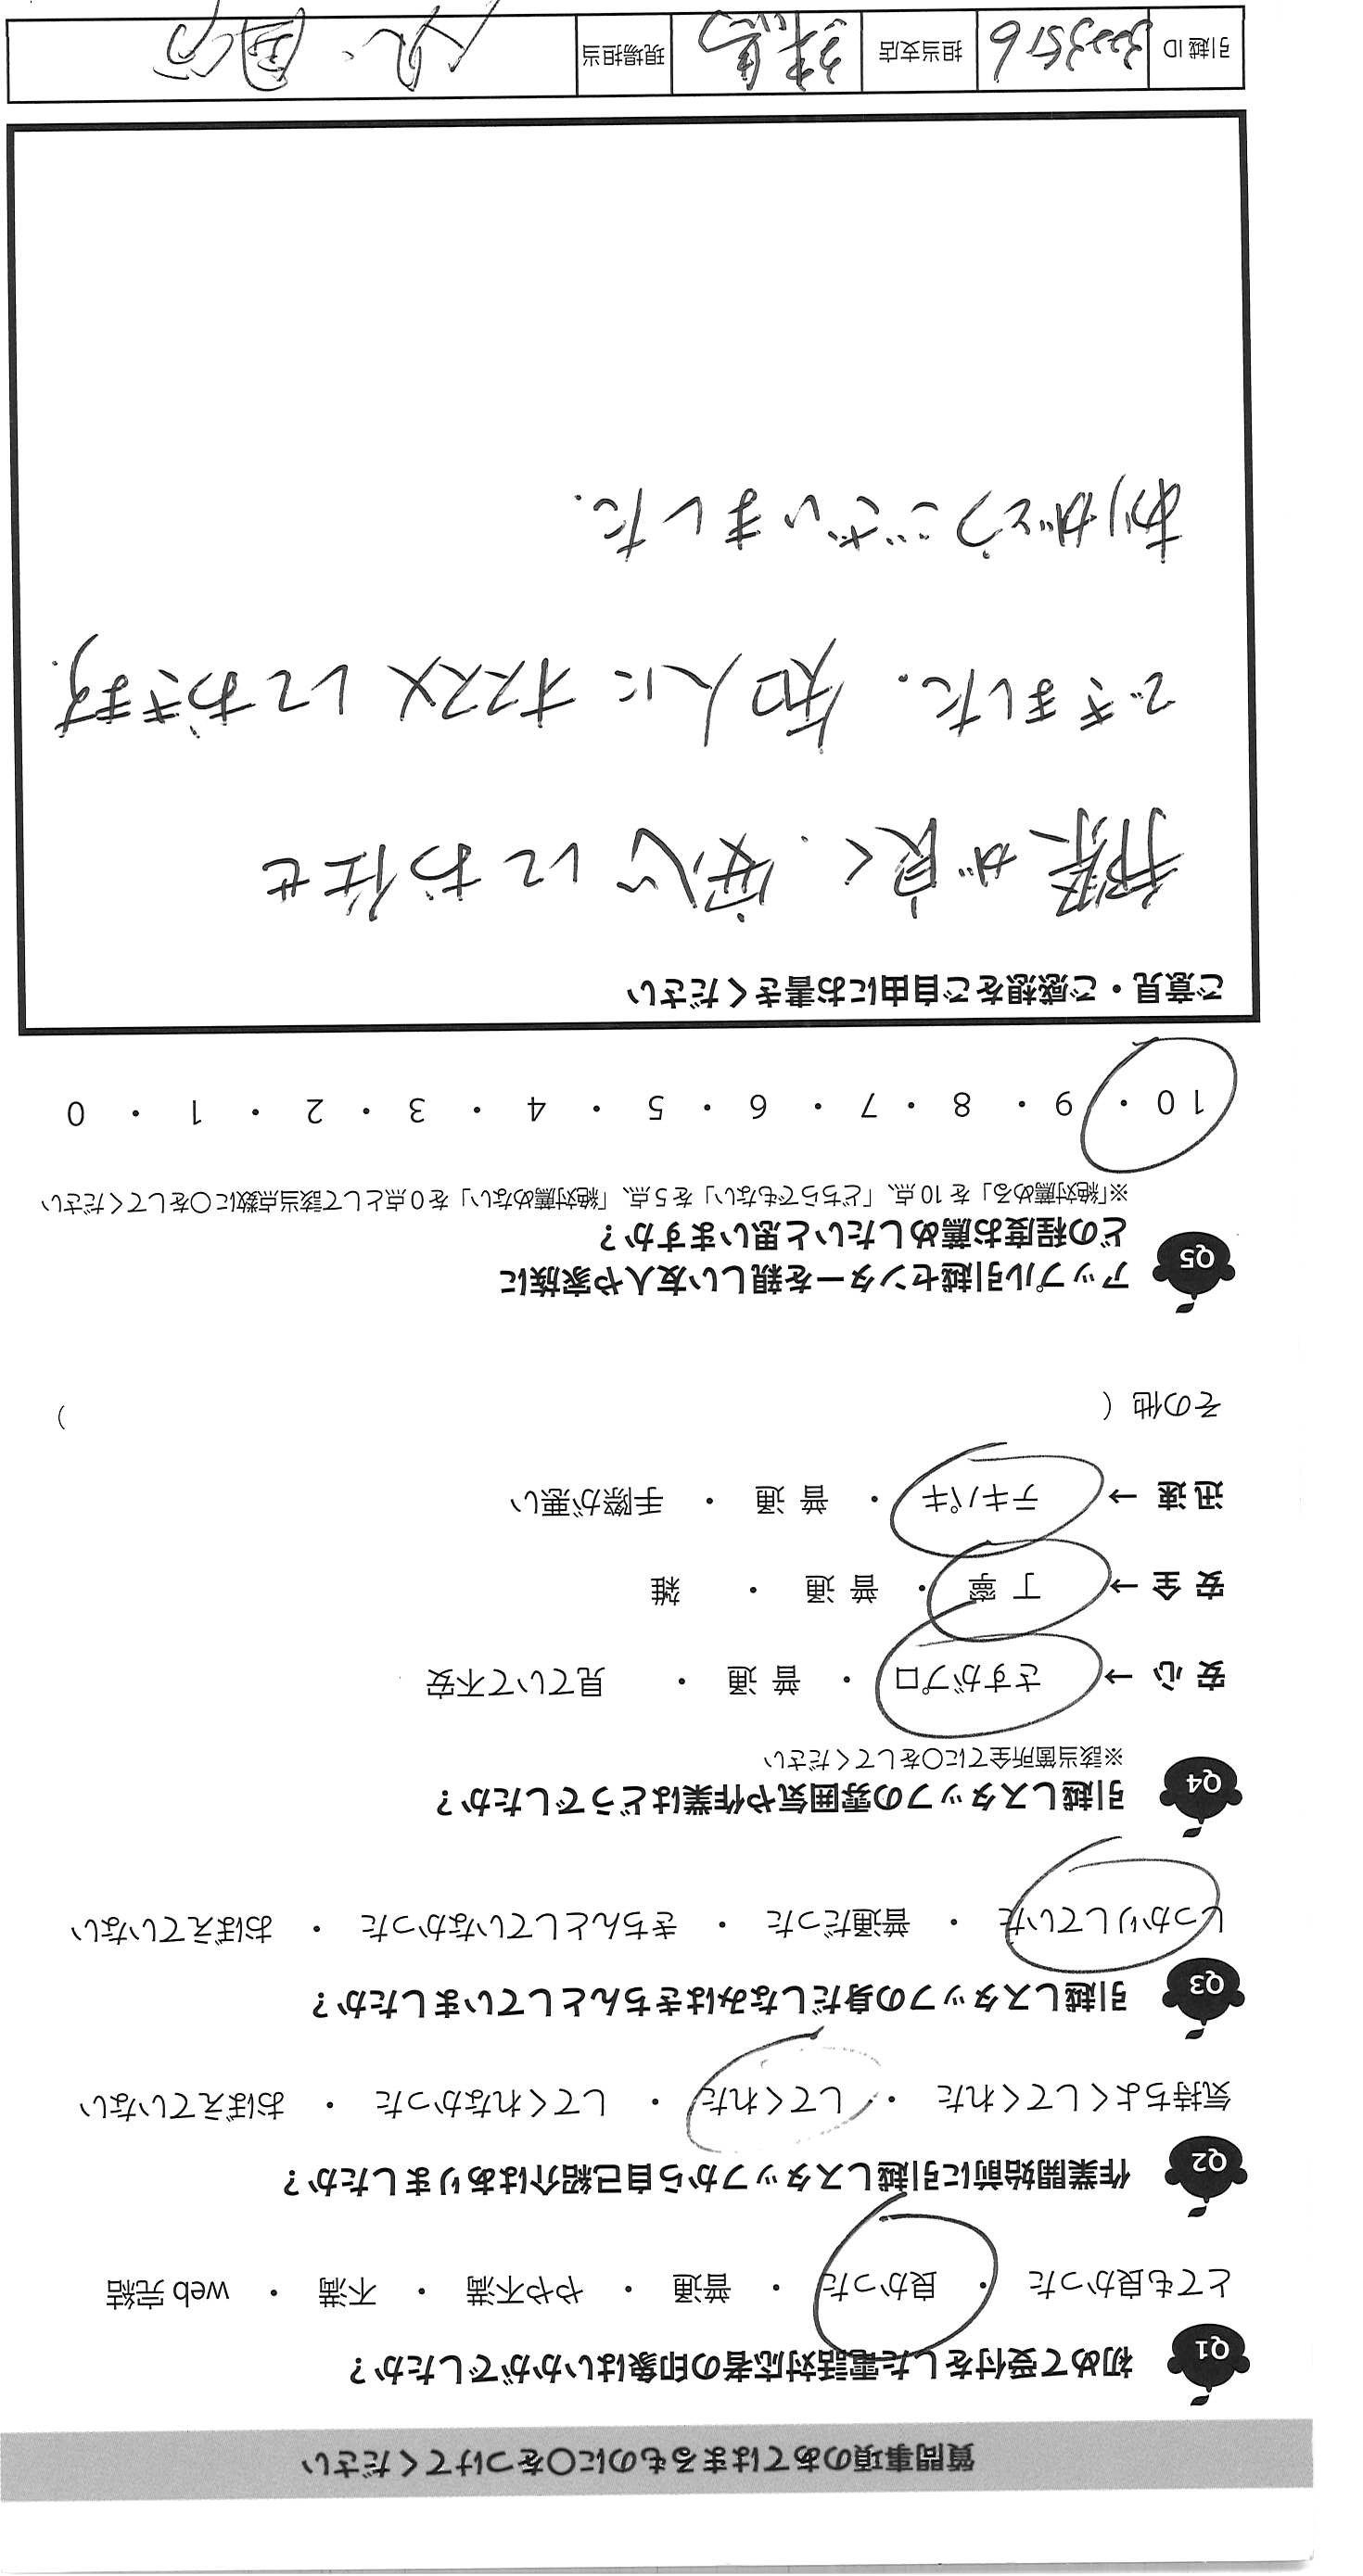 質問事項のあてはまるものに〇をつけてください
Q1 初めて受付をした電話対応者の印象はいかがでしたか？
とても良かった ・ 良かった ・ 普通 ・ やや不満 ・ 不満 ・ web 完結
Q2 作業開始前に引越しスタッフから自己紹介はありましたか？
気持ちよくしてくれた ・ してくれた ・ してくれなかった ・ おぼえていない
Q3 引越しスタッフの身だしなみはきちんとしていましたか？
しっかりしていた ・ 普通だった ・ きちんとしていなかった ・ おぼえていない
Q4 引越しスタッフの雰囲気や作業はどうでしたか？
※該当箇所全てに〇をしてください
安 心 → さすがプロ ・ 普 通 ・ 見ていて不安
安 全 → 丁 寧 ・ 普 通 ・ 雑
迅 速 → テキパキ ・ 普 通 ・ 手際が悪い
その他（ ）
Q5 アップル引越センターを親しい友人や家族に
どの程度お薦めしたいと思いますか？
※「絶対薦める」を 10 点、「どちらでもない」を 5 点、「絶対薦めない」を 0 点として該当点数に〇をしてください
10 ・ 9 ・ 8 ・ 7 ・ 6 ・ 5 ・ 4 ・ 3 ・ 2 ・ 1 ・ 0
ご意見・ご感想をご自由にお書きください
手際が良く、安心してお任せ
できました。知人にオススメしておきます。
ありがとうございました。
引越 ID 3223516 担当支店 練馬 現場担当